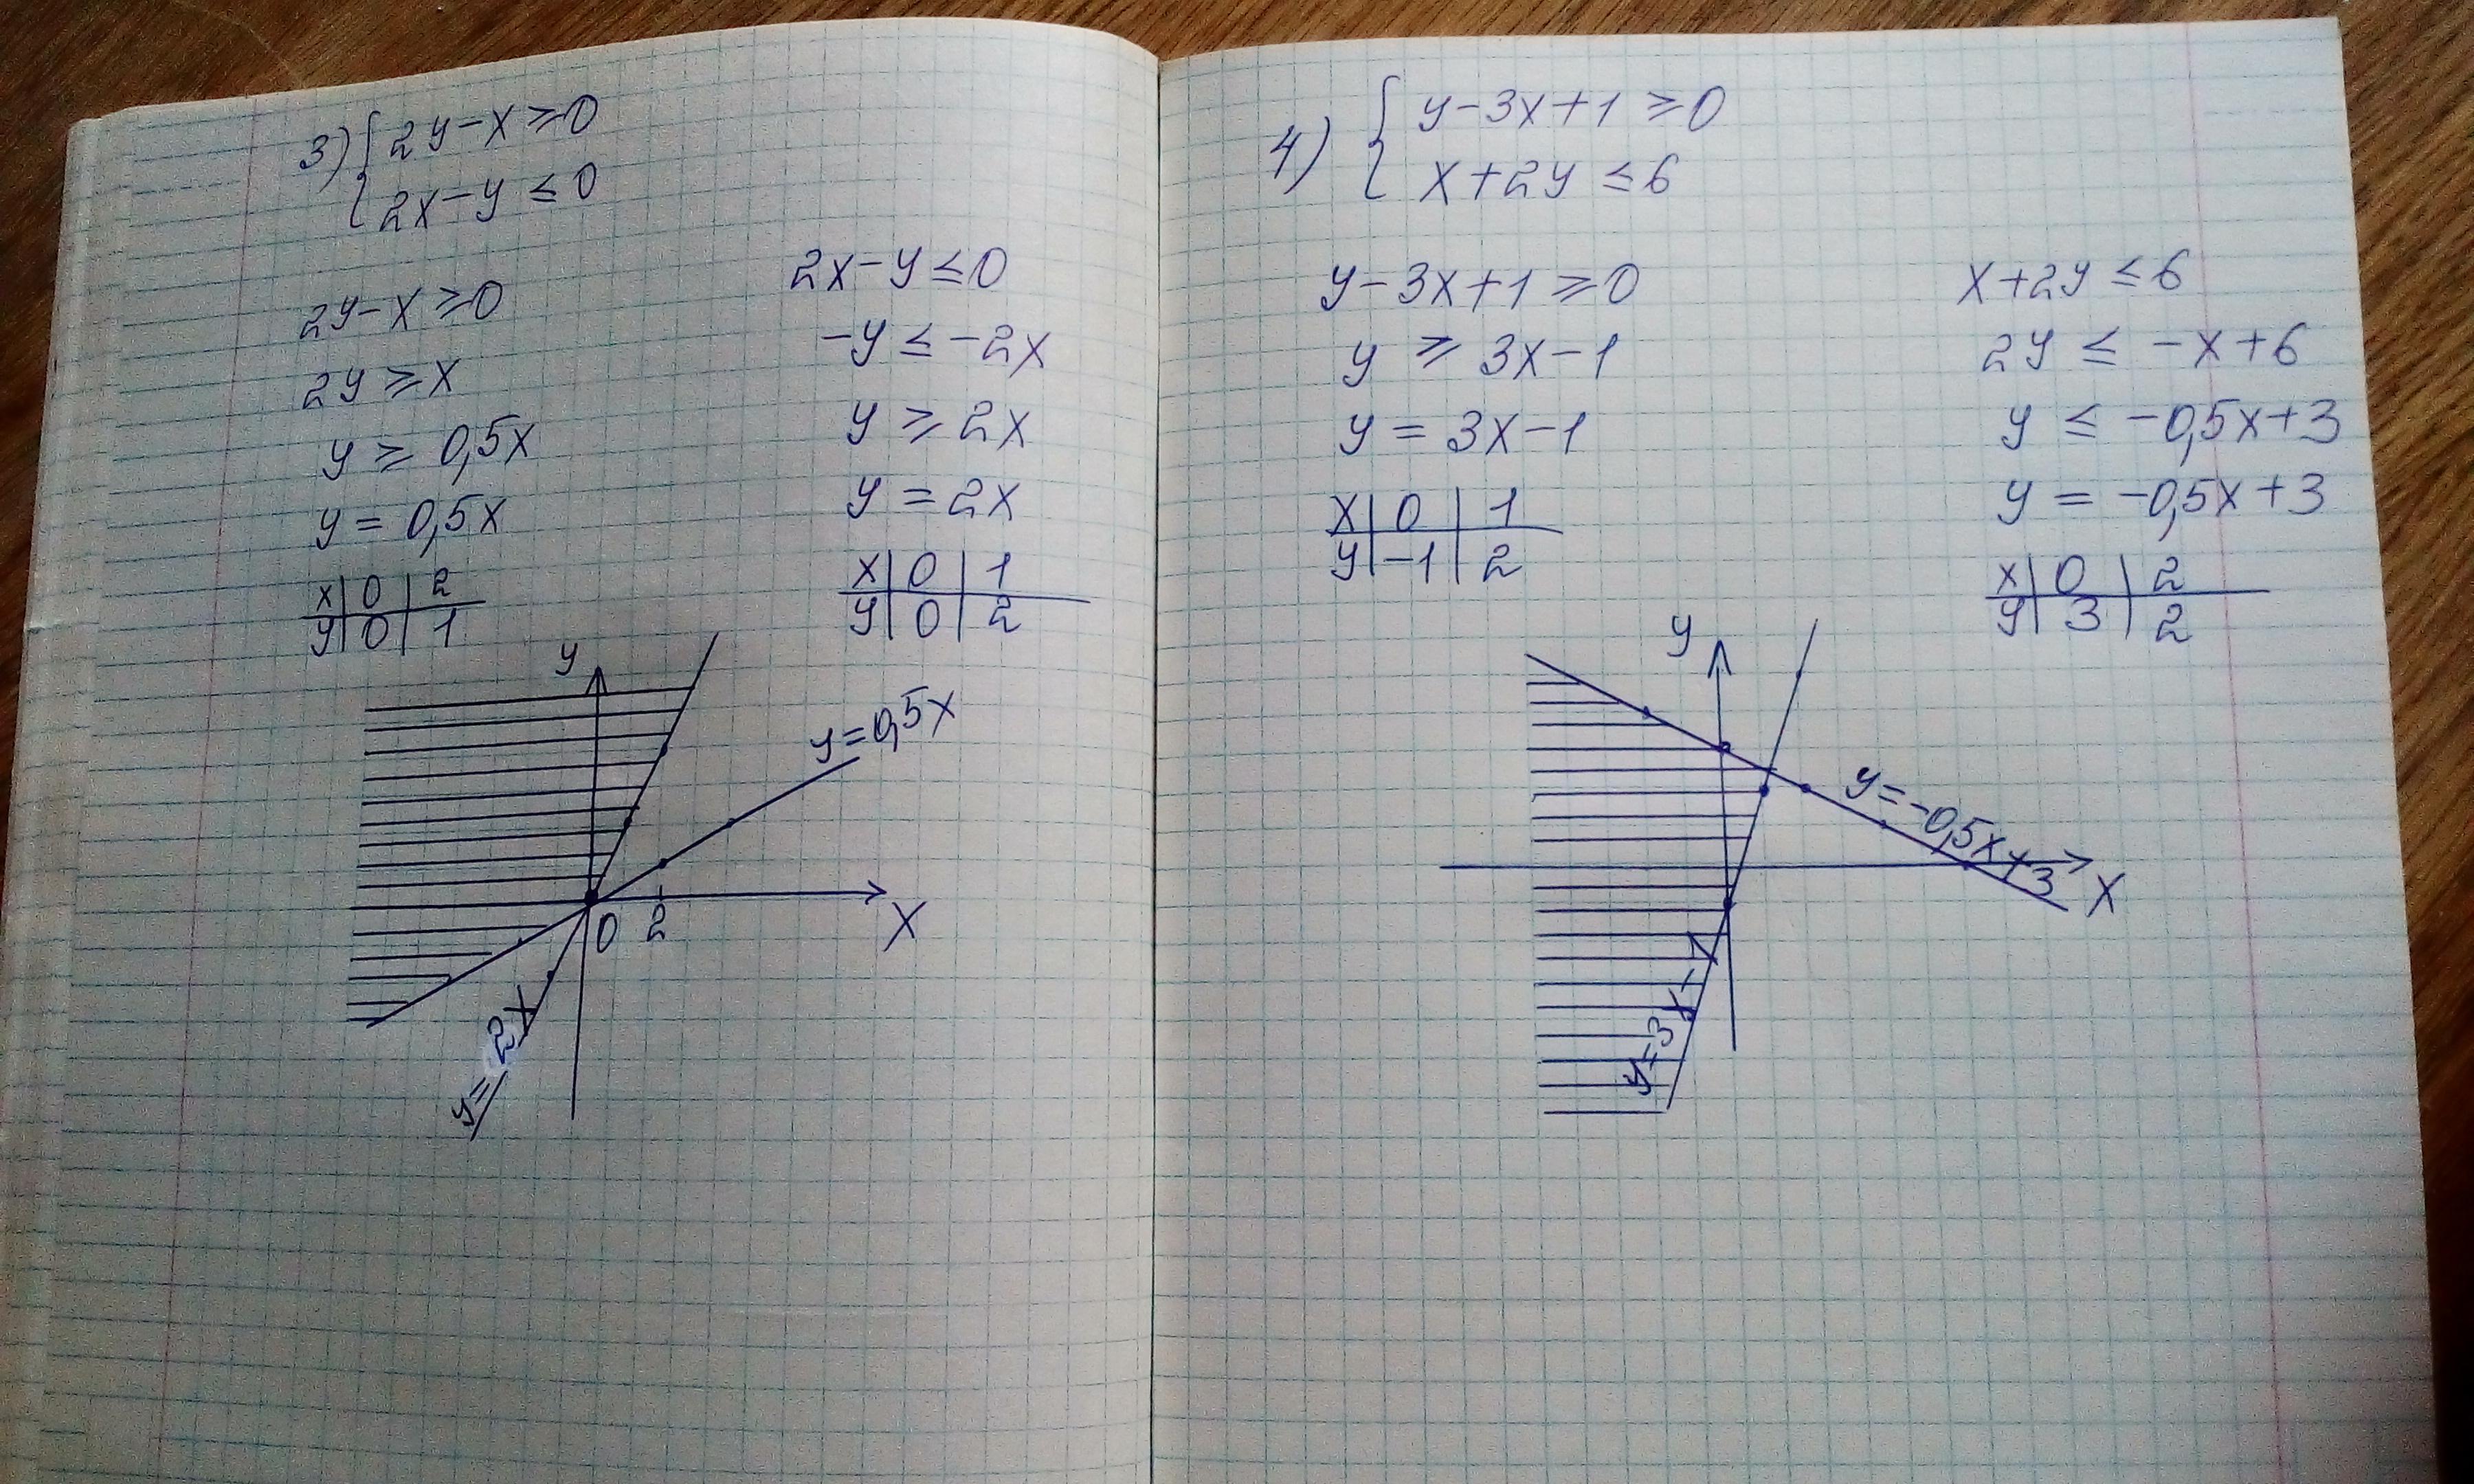 3) { 2y-x ≥ 0
2x-y ≤ 0
2y-x ≥ 0
2y ≥ x
y ≥ 0,5x
y = 0,5x
x | 0 | 2
y | 0 | 1
2x-y ≤ 0
-y ≤ -2x
y ≥ 2x
y = 2x
x | 0 | 1
y | 0 | 2
y
y=0,5x
0 2
x
y=2x
4) { y-3x+1 ≥ 0
x+2y ≤ 6
y-3x+1 ≥ 0
y ≥ 3x-1
y = 3x-1
x | 0 | 1
y | -1 | 2
x+2y ≤ 6
2y ≤ -x+6
y ≤ -0,5x+3
y = -0,5x+3
x | 0 | 2
y | 3 | 2
y
y=-0,5x+3
x
y=3x-1